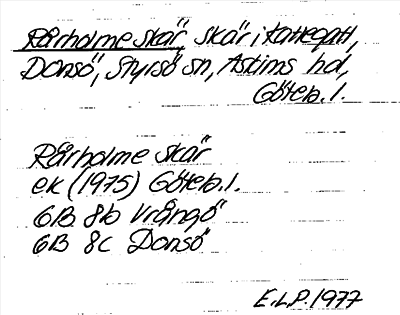 Rårholme skär, skär i Kattegatt,
Donsö, Styrsö sn, Askims hd,
Göteb. l.
Rårholme skär
ek (1975) Göteb. l.
6B 8b Vrångö
6B 8c Donsö
E.L.P. 1977